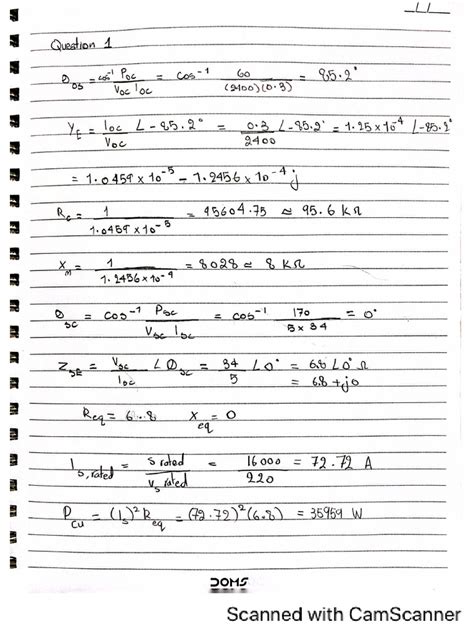 Question 1
θoc = cos⁻¹ Poc / Voc Ioc = cos⁻¹ 60 / (2400)(0.3) = 85.2°
YE = Ioc / Voc ∠-85.2° = 0.3 / 2400 ∠-85.2° = 1.25 x 10⁻⁴ ∠-85.2°
= 1.0459 x 10⁻⁵ - 1.2456 x 10⁻⁴ j
Rc = 1 / 1.0459 x 10⁻⁵ = 95604.75 ≈ 95.6 kΩ
XM = 1 / 1.2456 x 10⁻⁴ = 8028 ≈ 8 kΩ
θsc = cos⁻¹ Psc / Vsc Isc = cos⁻¹ 170 / 5 x 34 = 0°
ZSE = Vsc / Isc ∠θsc = 34 / 5 ∠0° = 6.8 ∠0° Ω
= 6.8 + j0
Req = 6.8 Xeq = 0
Is, rated = S rated / Vs rated = 16000 / 220 = 72.72 A
Pcu = (Is)² Req = (72.72)² (6.8) = 35959 W
DOMS
Scanned with CamScanner